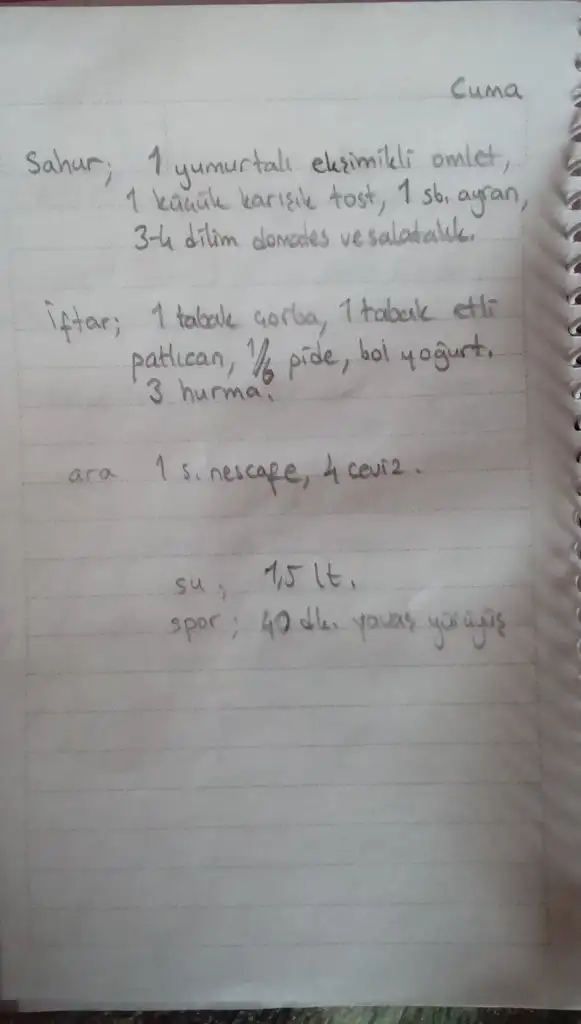 Cuma
Sahur; 1 yumurtalı ekşimikli omlet,
1 küçük karışık tost, 1 sb. ayran,
3-4 dilim domades ve salatalık.
İftar; 1 tabak çorba, 1 tabak etli
patlıcan, 1/6 pide, bol yoğurt.
3 hurma.
ara 1 s. nescafe, 4 ceviz.
su; 1,5 lt.
spor; 40 dk. yavaş yürüyüş